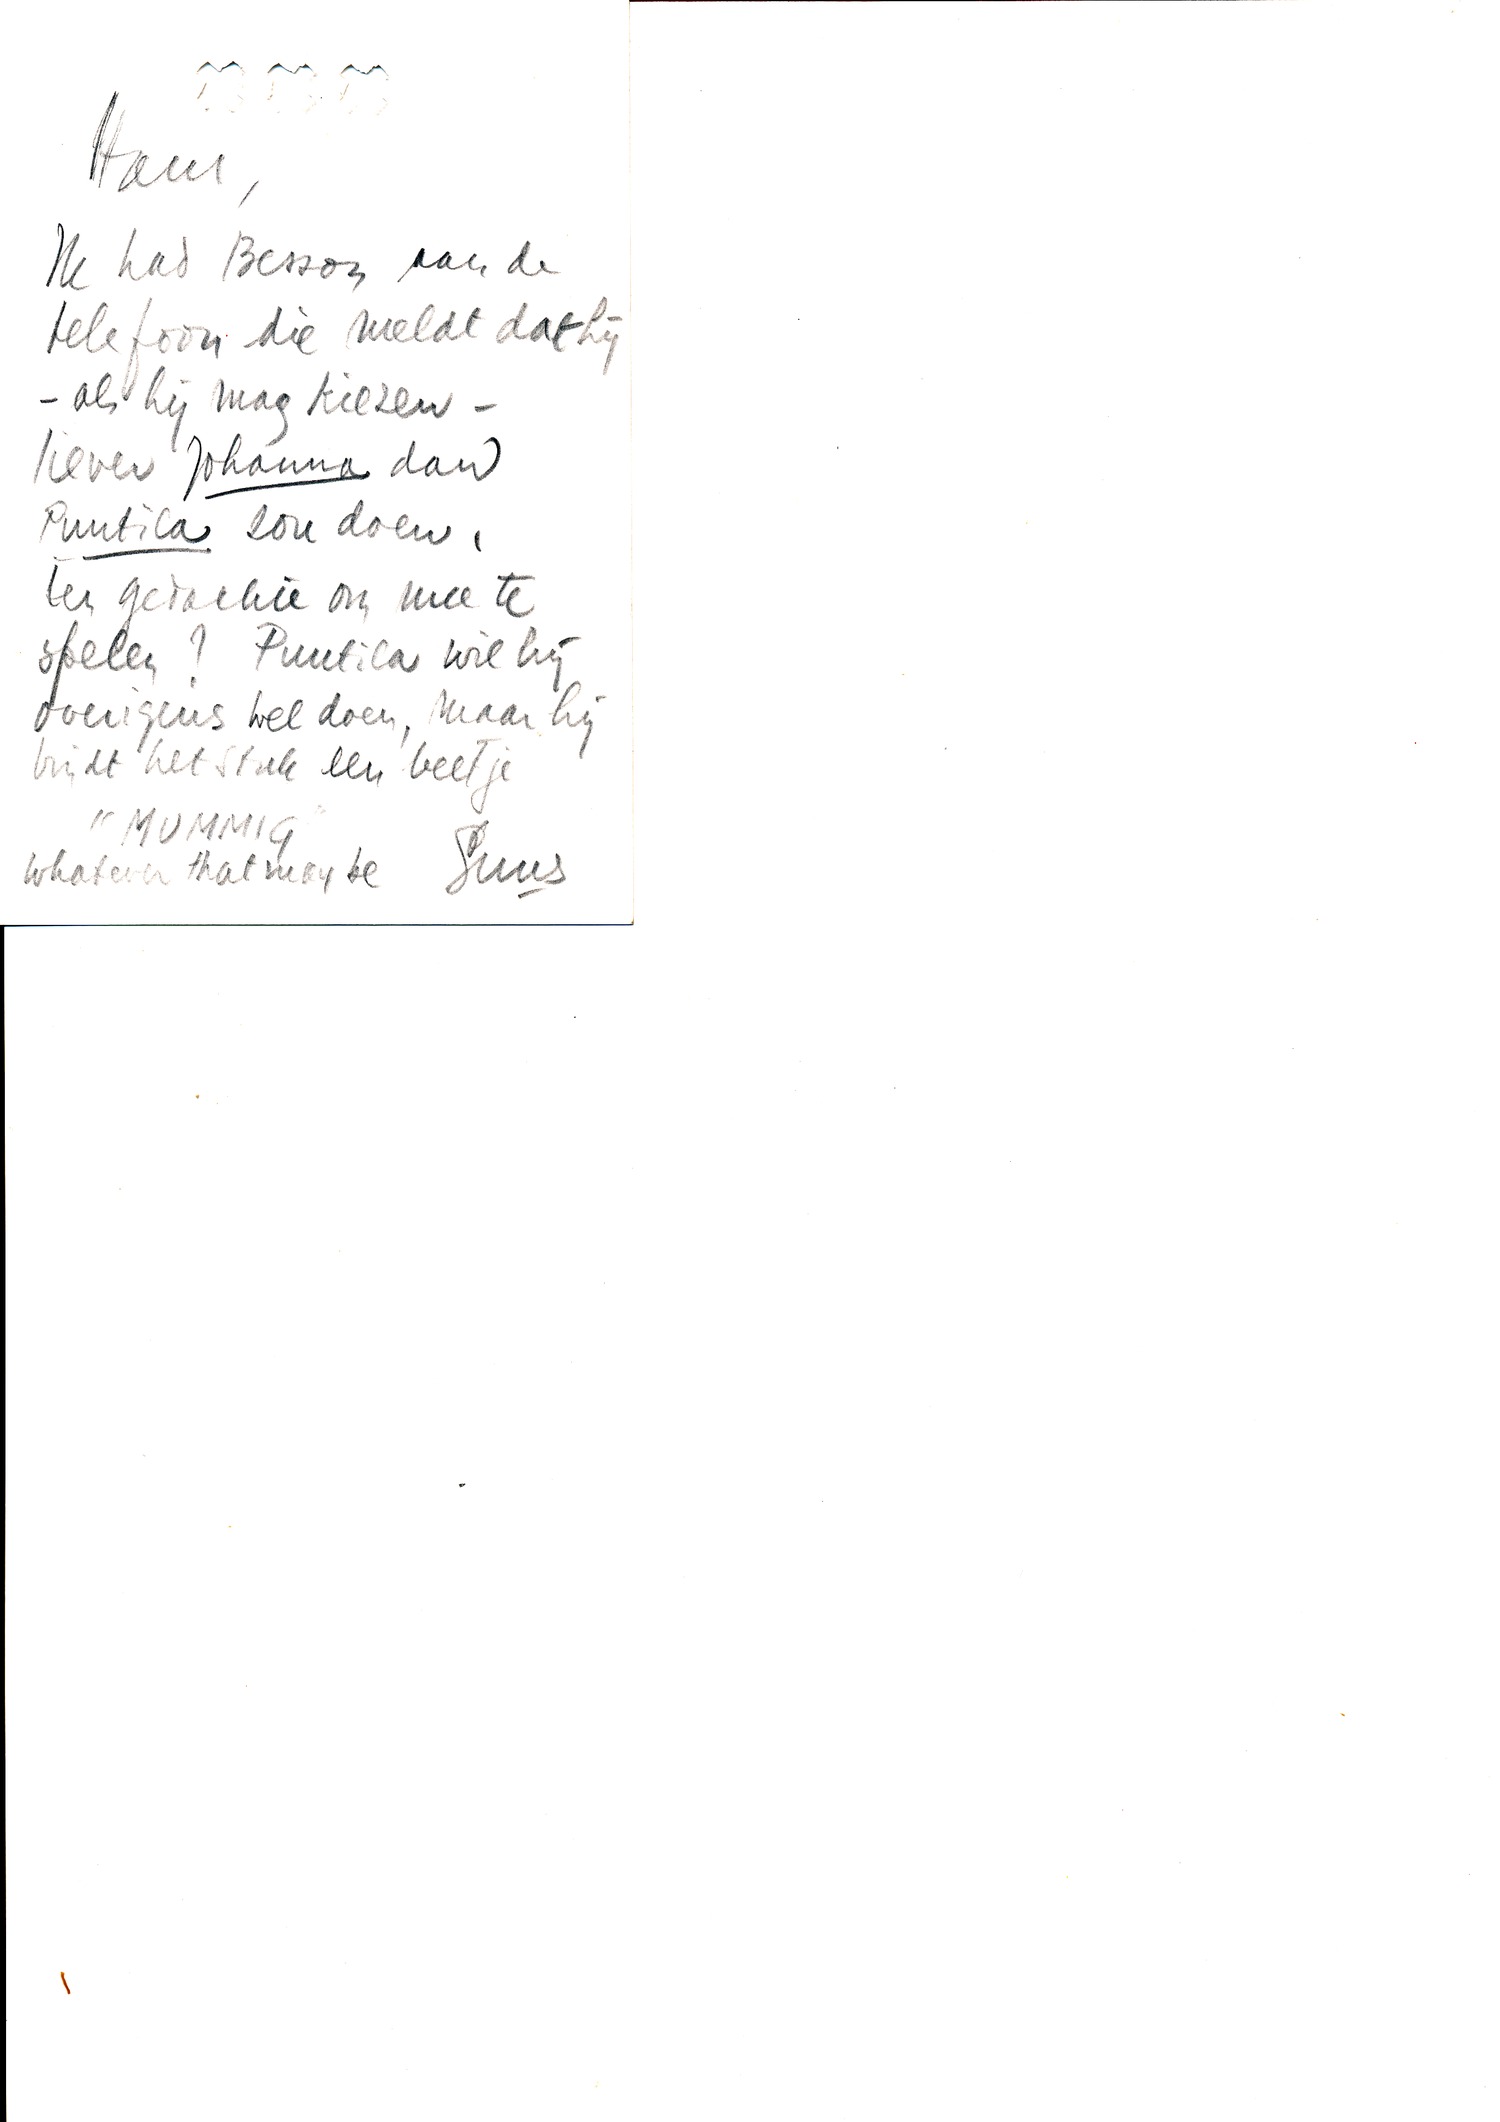 Hans,
Ik had Besson aan de
telefoon die meldt dat hij
- als hij mag kiezen -
liever Johanna dan
Puntila zou doen.
Een gedachte om mee te
spelen? Puntila wil hij
overigens wel doen, maar hij
vindt het stuk een beetje
"MUMMIG"
whatever that may be Guus